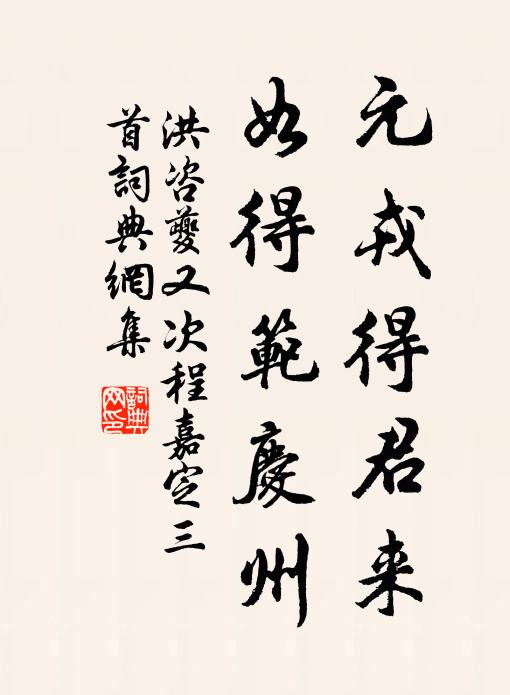 元戎得君来
如得範慶州
洪咨夔又次程嘉定三
首詞典網集
詞典网印